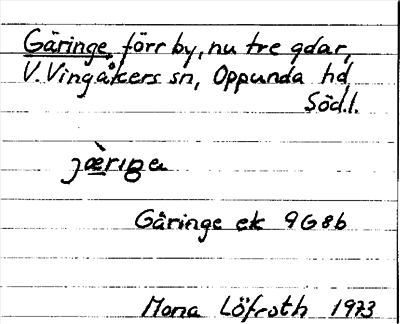 Gäringe, förr by, nu tre gdar,
V. Vingåkers sn, Oppunda hd
Södl.
Gäringe ek 9G8b
Mona Löfroth 1973